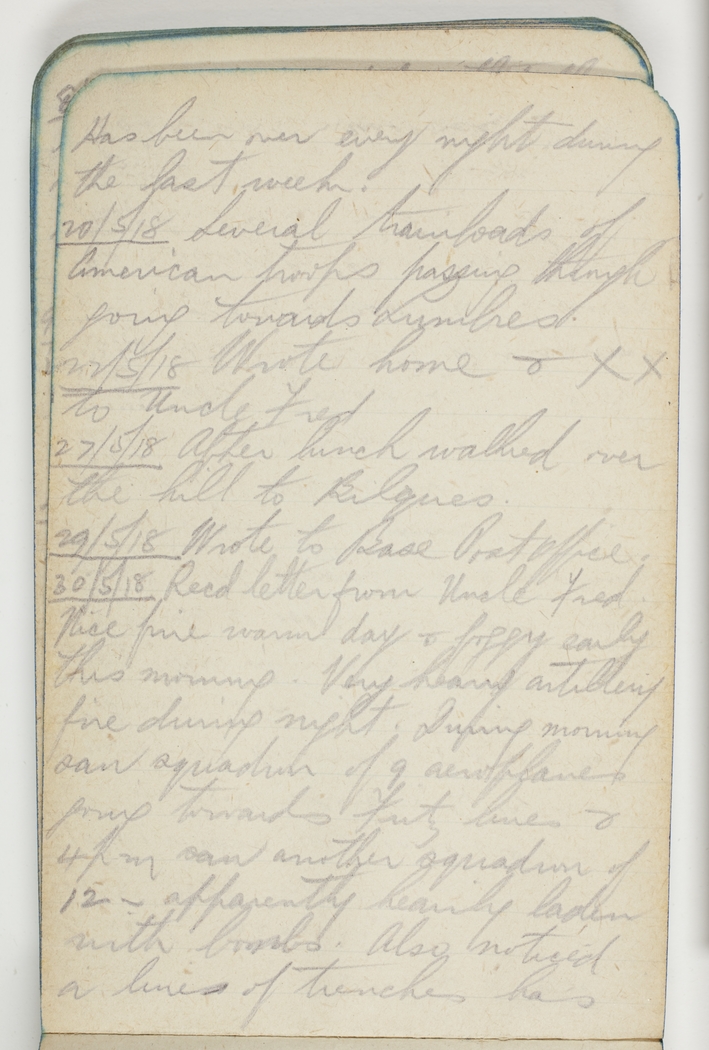 Has been over every night during
the last week.
20/5/18 Several trainloads of
American troops passing through
going towards Lumbres.
22/5/18 Wrote home & XX
to Uncle Fred
27/5/18 After lunch walked over
the hill to Bilques.
29/5/18 Wrote to Base Post Office.
30/5/18 Recd letter from Uncle Fred.
Nice fine warm day & foggy early
this morning. Very heavy artillery
fire during night. During morning
saw squadron of 9 aeroplanes
going towards Fritz lines &
4pm saw another squadron of
12 - apparently heavily laden
with bombs. Also noticed
a lines of trenches has